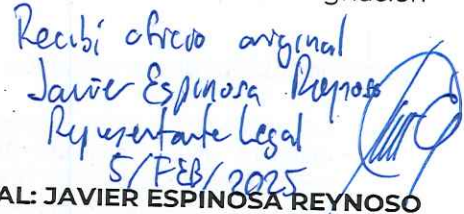 gnación
Recibí oficio original
Javier Espinosa Reynoso
Representante Legal
5/FEB/2025
AL: JAVIER ESPINOSA REYNOSO